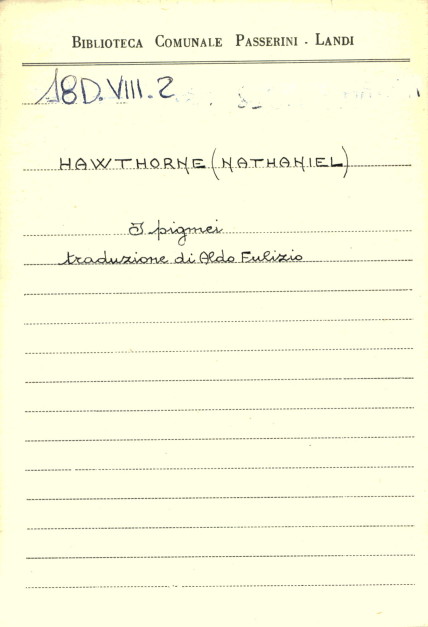 BIBLIOTECA COMUNALE PASSERINI - LANDI
18D.VIII.2
HAWTHORNE (NATHANIEL)
I pigmei
traduzione di Aldo Fulizio